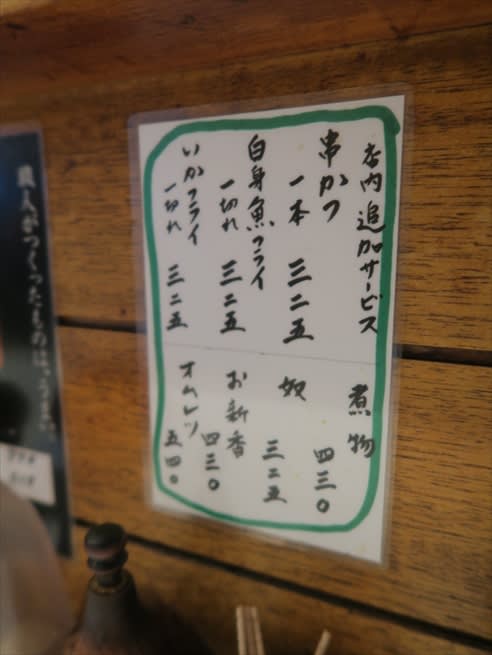 店内追加サービス
串かつ
一本 三二五
白身魚フライ
一切れ 三二五
いかフライ
一切れ 三二五
煮物
四三〇
奴
三二五
お新香
四三〇
オムレツ
五四〇
職人がつくったものは、うまい。